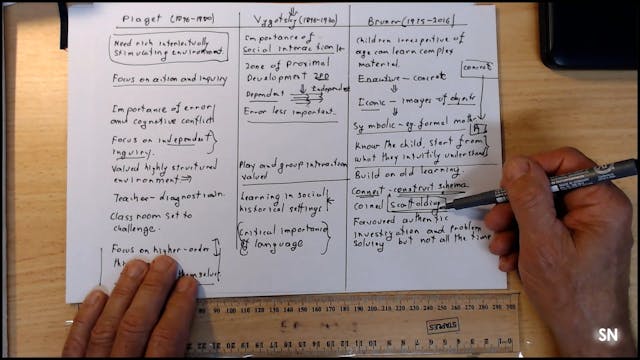 Piaget (1896-1980)
Need rich intellectually
stimulating environment.
Focus on action and inquiry
Importance of error
and cognitive conflict
Focus on independent
inquiry.
Valued highly structured
environment
Teacher - diagnostician.
Class room set to
challenge.
Focus on higher-order
Vygotsky
Importance of
social interaction
Zone of Proximal
Development ZPD
Dependent Independent
Error less important
Play and group interaction
valued
Learning in social
historical settings
Critical importance
of language
Bruner (1915-2016)
Children irrespective of
age can learn complex
material.
Enacture - concrete
Iconic - images of objects
Symbolic - eg. formal maths
Know the child, start from
what they intuitily understand
Build on old learning
Connect - construct schema
Coined Scaffolding
Favoured authentic
investigation and problem
solving but not all the time
concret
STAPLES
SN